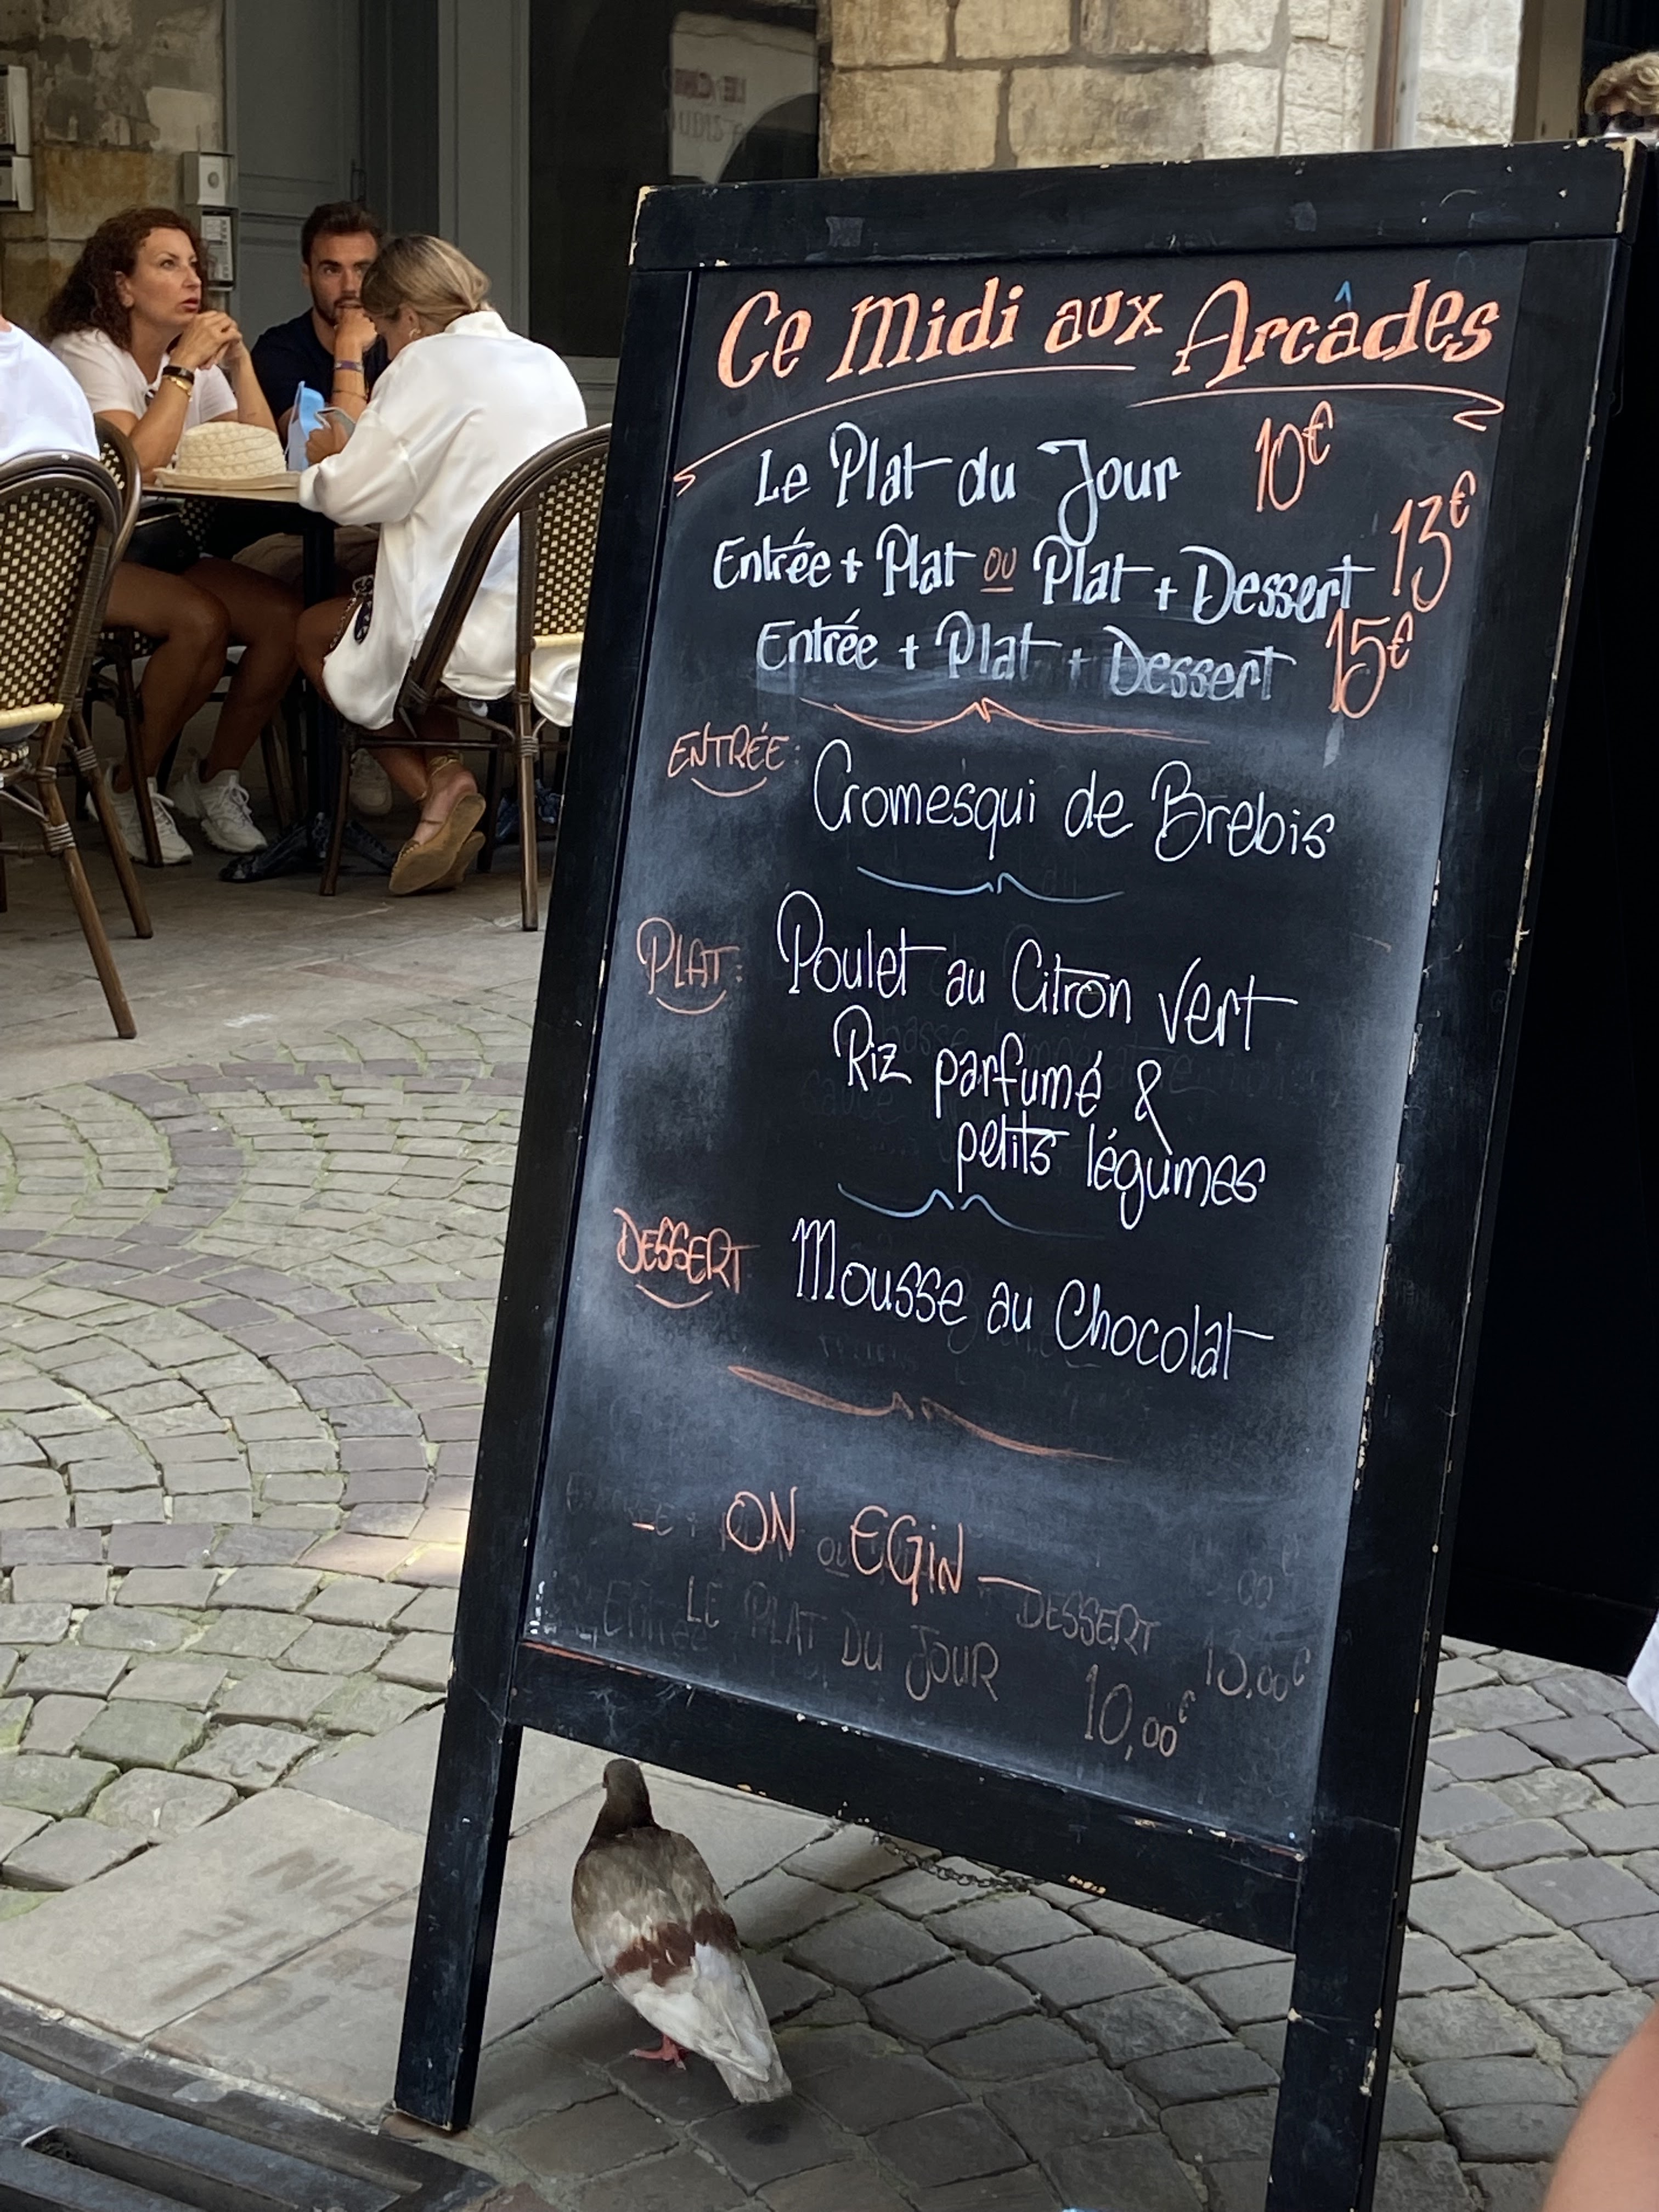 Ce Midi aux Arcâdes
Le Plat du Jour 10€
Entrée + Plat ou Plat + Dessert 13€
Entrée + Plat + Dessert 15€
ENTRÉE: Cromesqui de Brebis
PLAT: Poulet au Citron vert
Riz parfumé &
petits légumes
DESSERT Mousse au Chocolat
ON EGiN
DESSERT
LE PLAT DU JOUR 10,00€